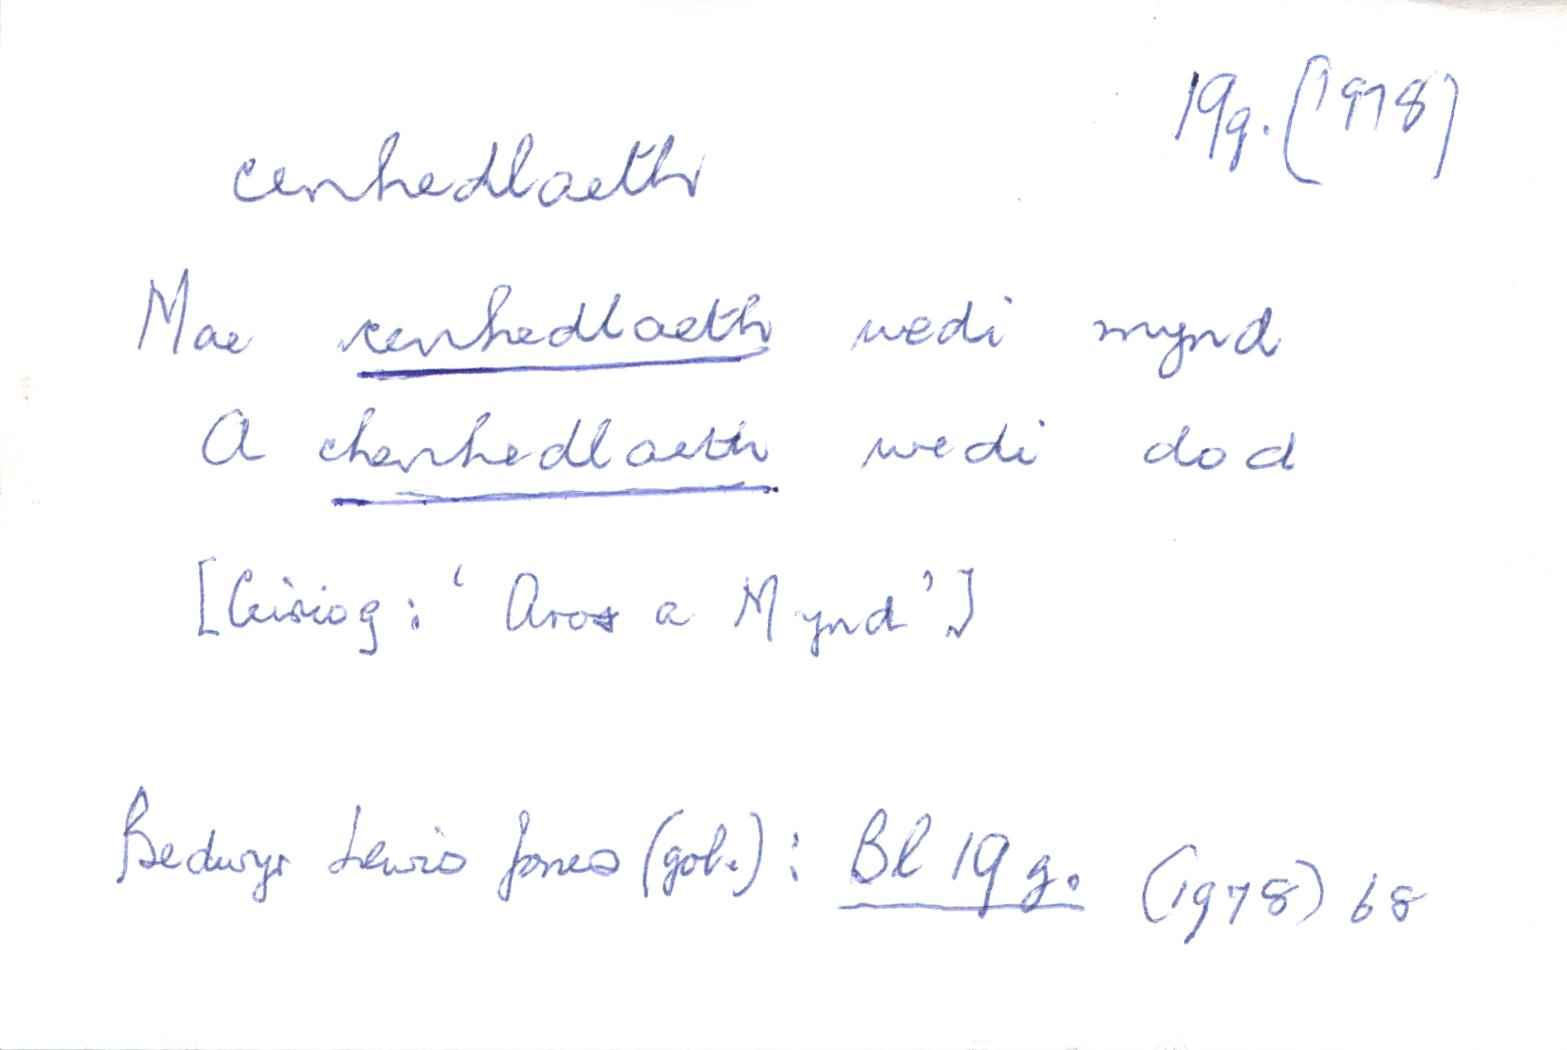 19g. (1978)
cenhedlaeth
Mae cenhedlaeth wedi mynd
A chenhedlaeth wedi dod
[Ceiriog: ‘Aros a Mynd’]
Bedwyr Lewis Jones (gol.): Bl 19 g. (1978) 68